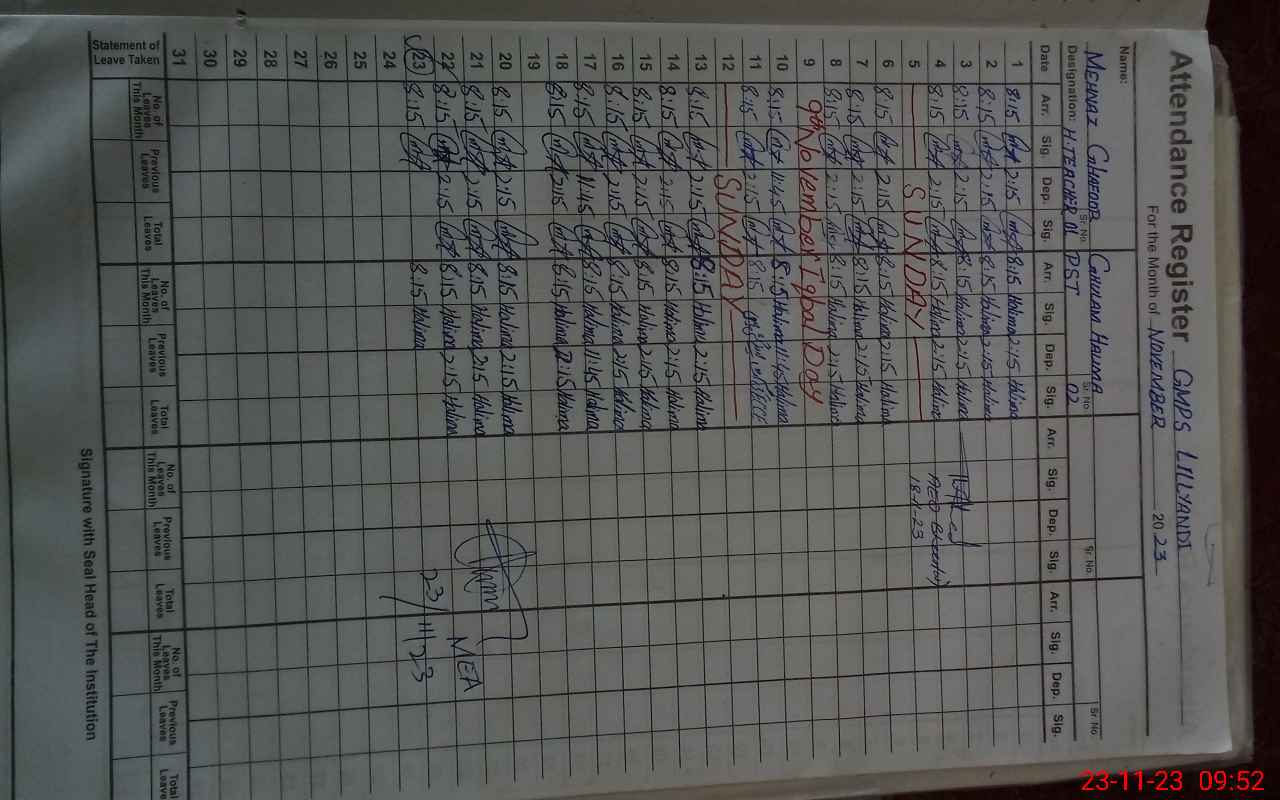 Attendance Register GMPS LILLYANDI
For the Month of NOVEMBER 2023
Name: MEHNAZ GHAFOOR GHULAM HALIMA
Sr. No. Sr. No. Sr No. Sr No
Designation: H.TEACHER 01 PST 02
Date Arr. Sig. Dep. Sig. Arr. Sig. Dep. Sig. Arr. Sig. Dep. Sig. Arr. Sig. Dep. Sig.
1 8:15 2:15 8:15 Halima 2:15 Halima
2 8:15 2:15 8:15 Halima 2:15 Halima
3 8:15 2:15 8:15 Halima 2:15 Halima
4 8:15 2:15 8:15 Halima 2:15 Halima
AEO
18-11-23
5 SUNDAY
6 8:15 2:15 8:15 Halima 2:15 Halima
7 8:15 2:15 8:15 Halima 2:15 Halima
8 8:15 2:15 8:15 Halima 2:15 Halima
9 9th November Iqbal Day
10 8:15 11:45 8:15 Halima 11:45 Halima
11 8:15 2:15 8:15
12 SUNDAY
13 8:15 2:15 8:15 Halima 2:15 Halima
14 8:15 2:15 8:15 Halima 2:15 Halima
15 8:15 2:15 8:15 Halima 2:15 Halima
16 8:15 2:15 8:15 Halima 2:15 Halima
17 8:15 11:45 8:15 Halima 11:45 Halima
18 8:15 2:15 8:15 Halima 2:15 Halima
19
20 8:15 2:15 8:15 Halima 2:15 Halima
21 8:15 2:15 8:15 Halima 2:15 Halima
22 8:15 2:15 8:15 Halima 2:15 Halima
MEA
23 8:15 8:15 Halima
23/11/23
24
25
26
27
28
29
30
31
Statement of Leave Taken No. of Leaves This Month Previous Leaves Total Leaves No. of Leaves This Month Previous Leaves Total Leaves No. of Leaves This Month Previous Leaves Total Leaves No. of Leaves This Month Previous Leaves Total Leaves
Signature with Seal Head of The Institution
23-11-23 09:52